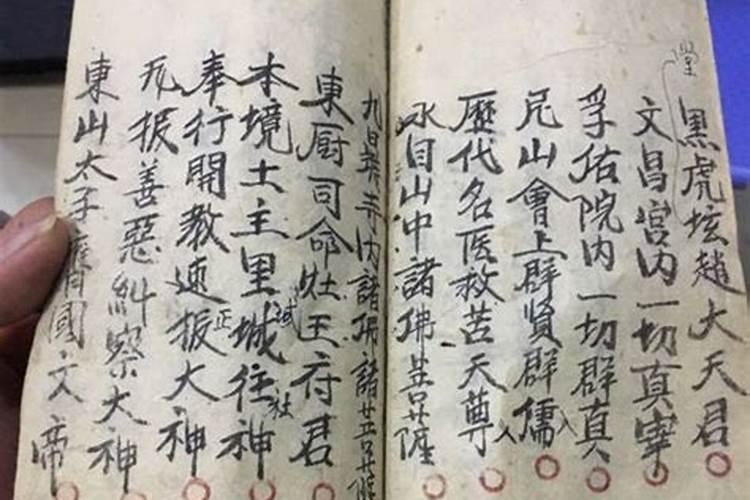 堂
黑虎坛趙大天君
文昌宮内一切真宰
孚佑院内一切群真
尼山會上群賢群儒
歷代名医救苦天尊
水目山中諸佛菩薩
九鼎寺内諸佛諸菩薩
東厨司命灶王府君
域
社
本境土主里城往神
正
奉行開教速振大神
振善惡糾察大神
東山太子國文帝